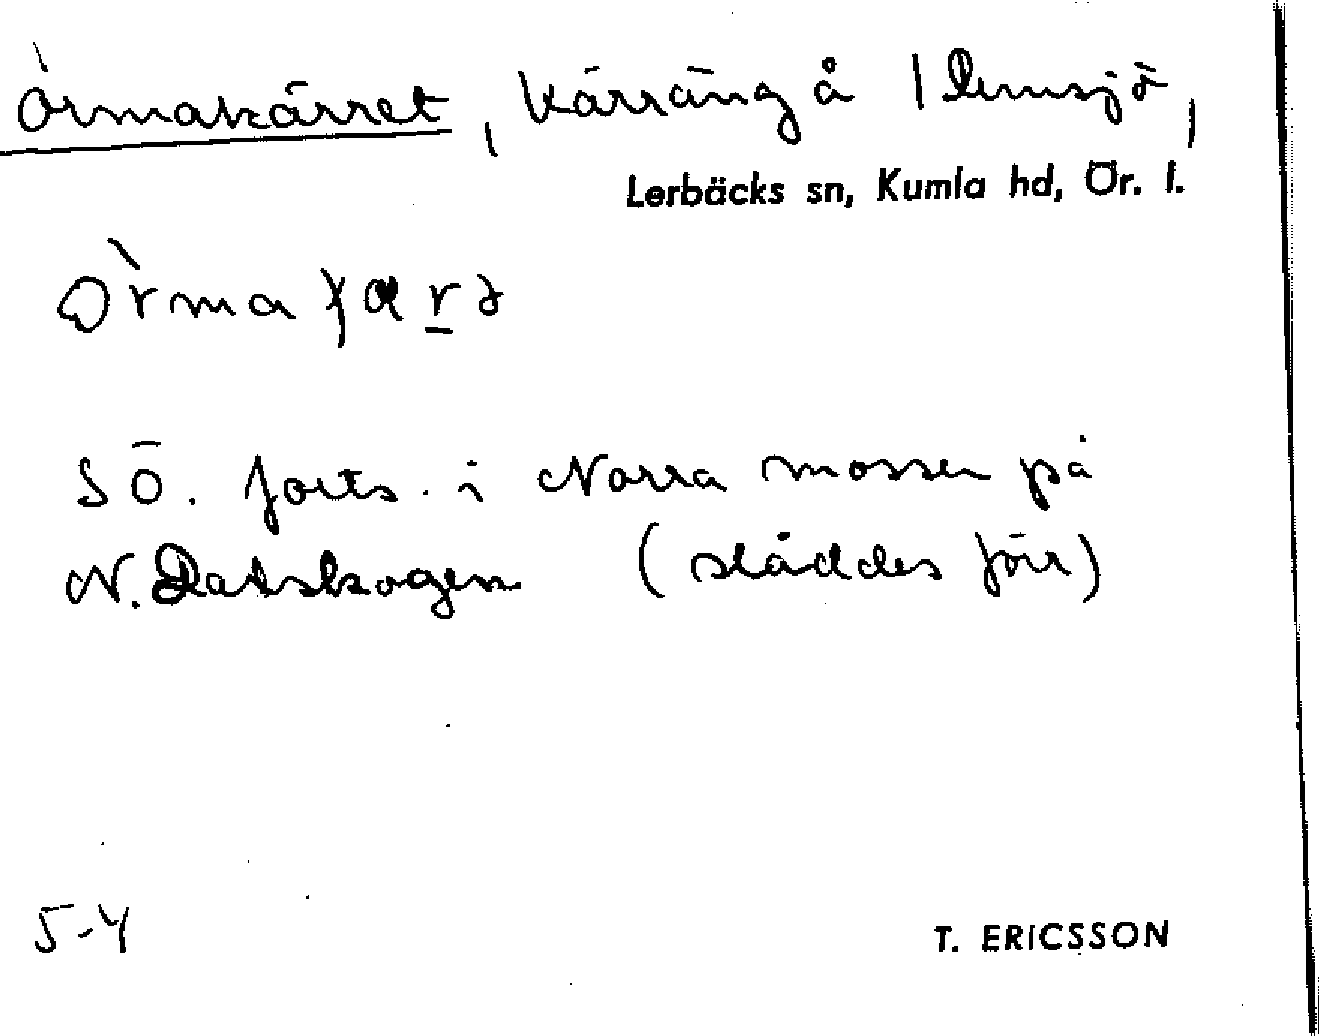 Ormakärret, Kärräng å 1 Rernsjö,
Lerbäcks sn, Kumla hd, Ör. l.
SÖ. forts. i Norra mossen på
N. Dalskogen (slåddes förr)
5-4
T. ERICSSON